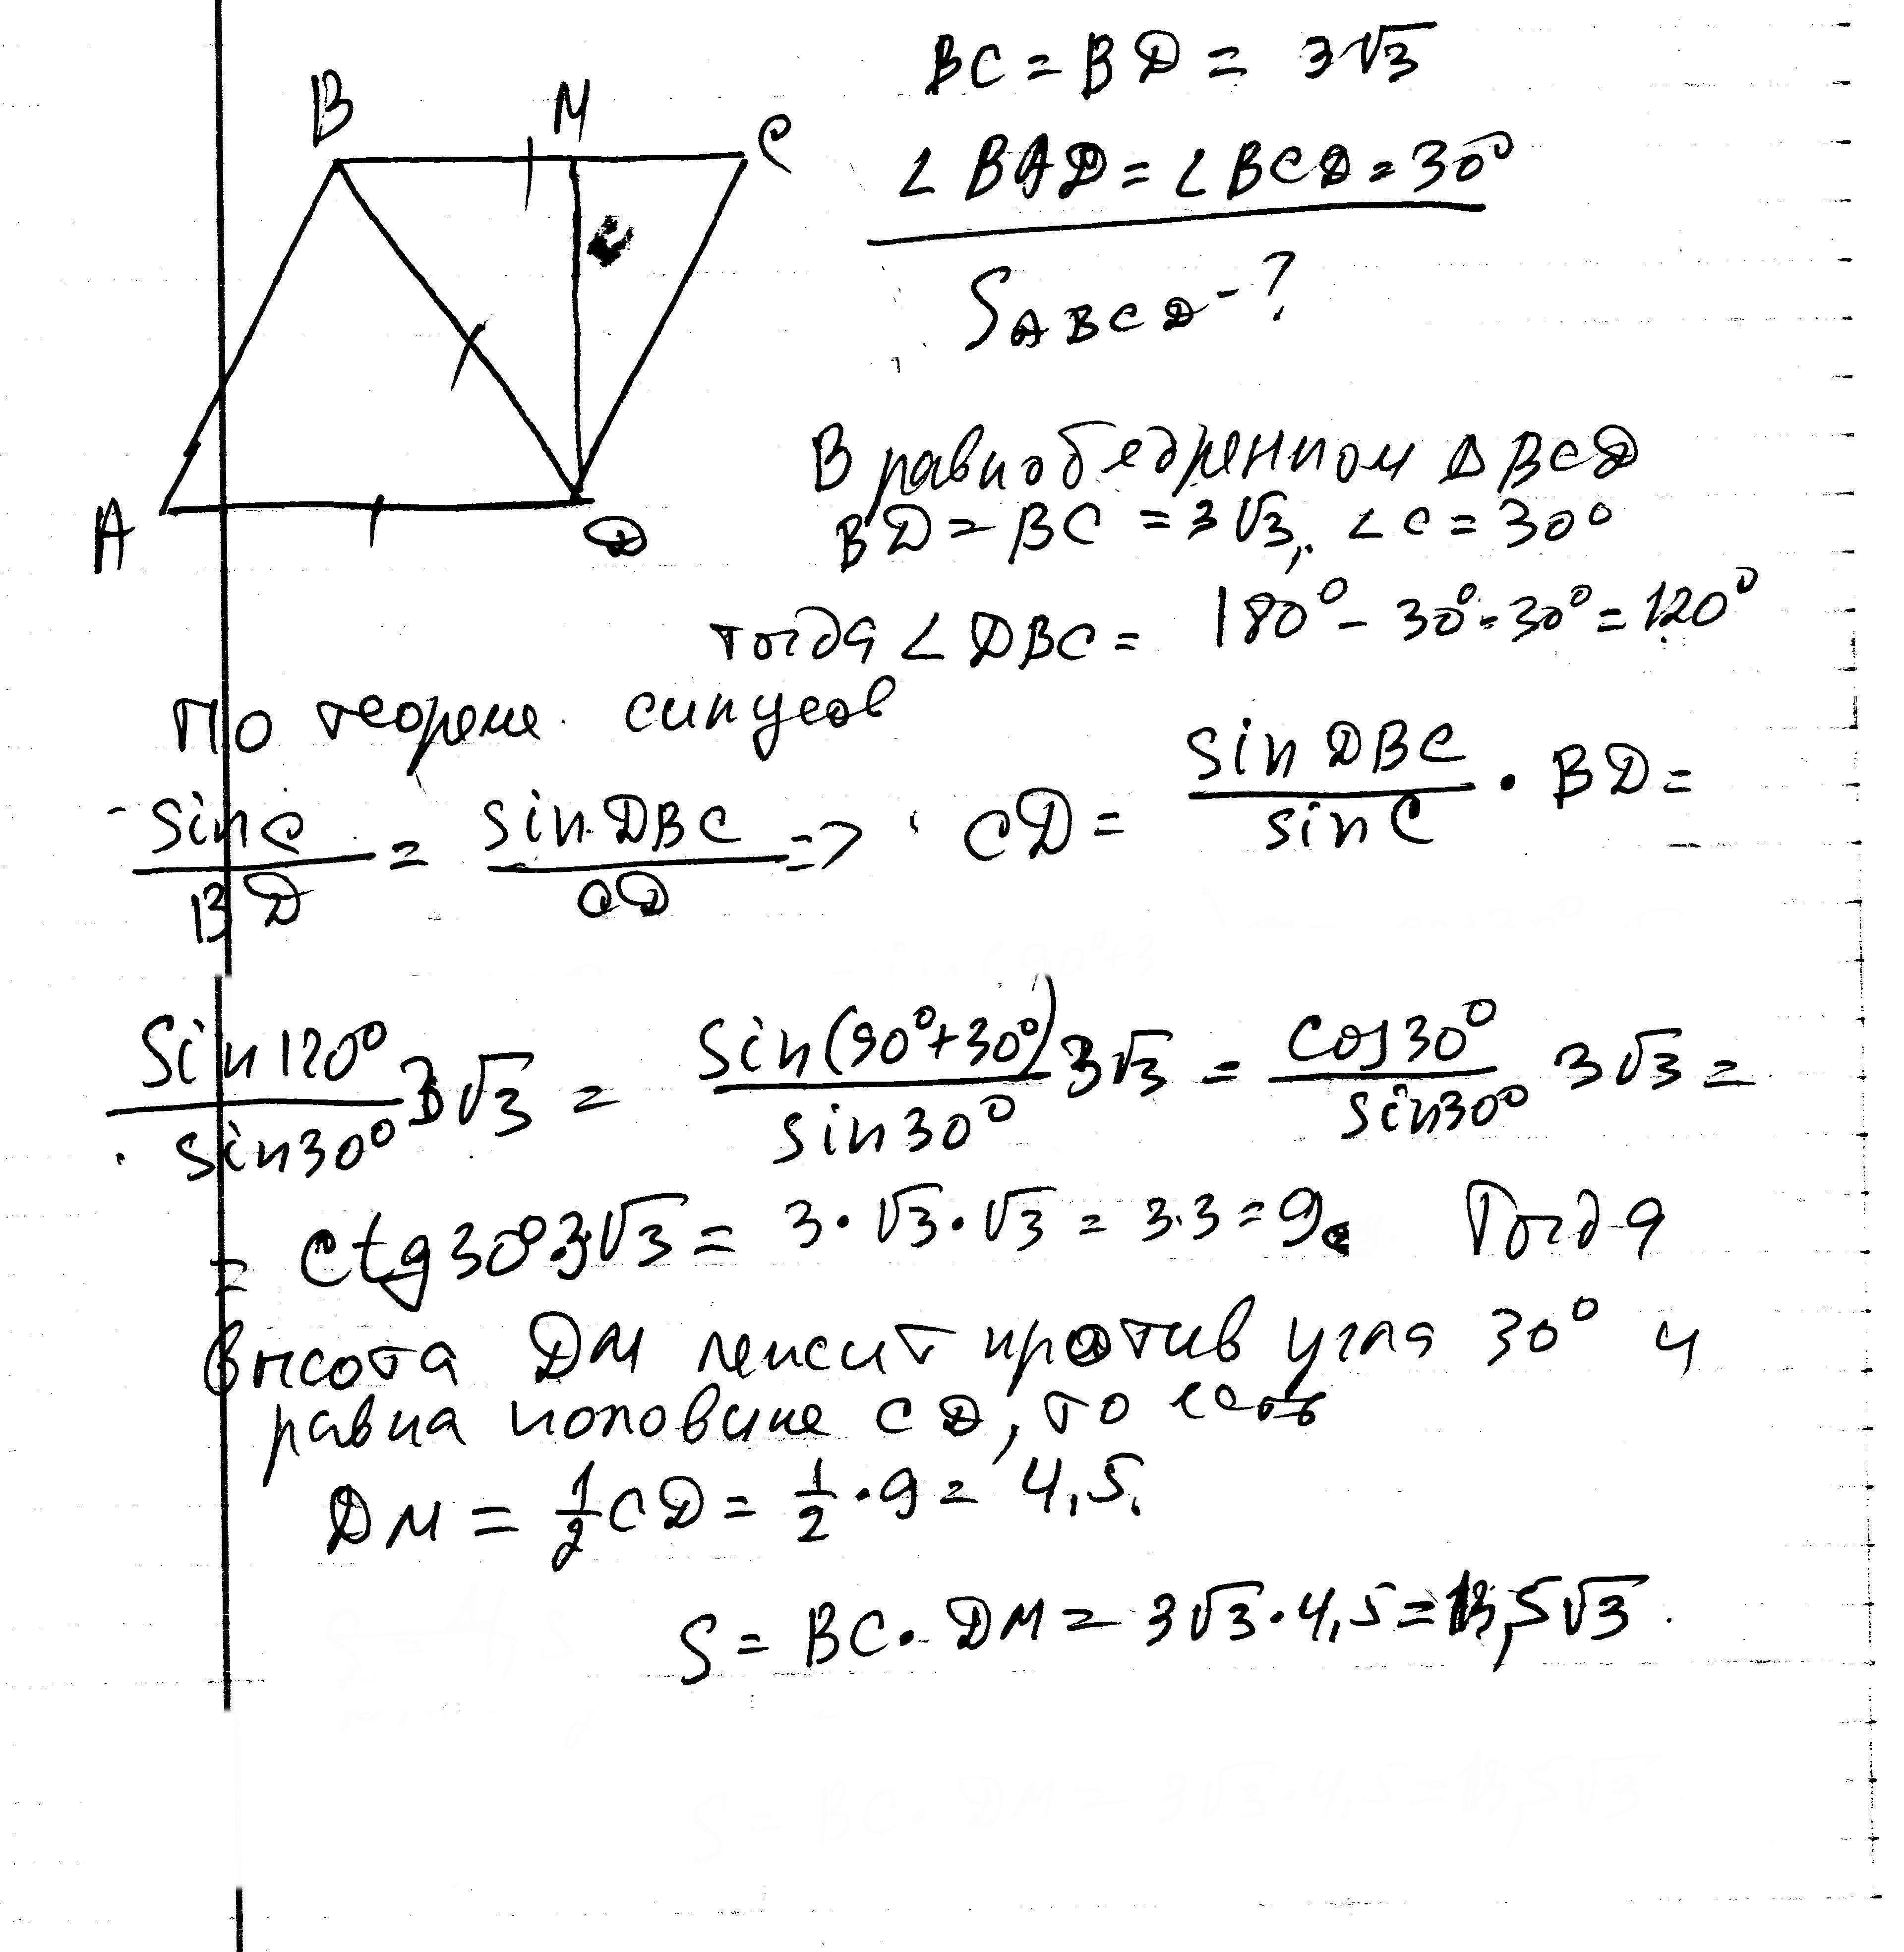 B M C
A D
BC = BD = 3√3
∠BAD = ∠BCD = 30°
S ABCD - ?
В равнобедренном Δ BCD
BD = BC = 3√3, ∠C = 30°
тогда ∠DBC = 180° - 30° - 30° = 120°
По теореме синусов
sin C / BD = sin DBC / CD => CD = sin DBC / sin C · BD =
sin 120° / sin 30° 3√3 = sin(90°+30°) / sin 30° 3√3 = cos 30° / sin 30° 3√3 =
= ctg 30° · 3√3 = 3 · √3 · √3 = 3·3 = 9. Тогда
высота DM лежит против угла 30° и
равна половине CD, то есть
DM = 1/2 CD = 1/2 · 9 = 4,5.
S = BC · DM = 3√3 · 4,5 = 13,5√3.